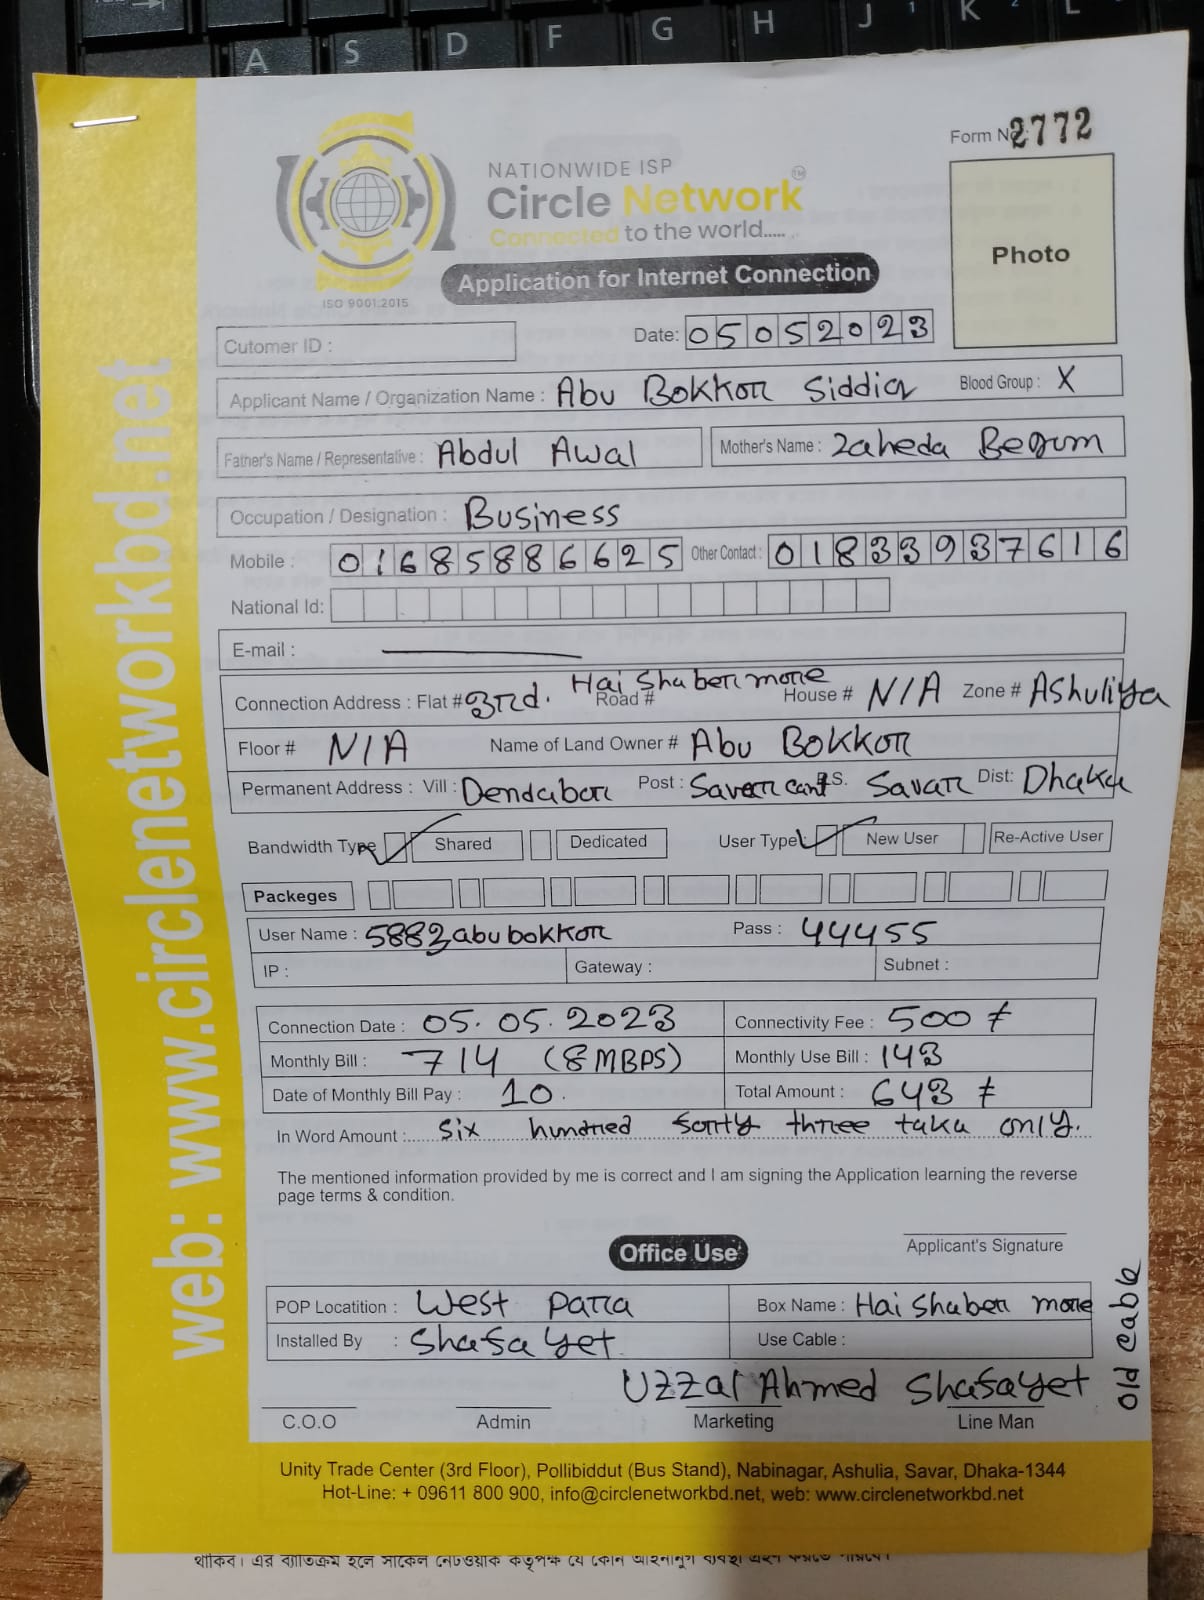 A S D F G H J K L
Form No 2772
NATIONWIDE ISP
Circle Network TM
Connected to the world.....
ISO 9001:2015
Application for Internet Connection
Photo
Cutomer ID :
Date: 05052023
Applicant Name / Organization Name : Abu Bokkor Siddiq Blood Group : X
Father's Name / Representative : Abdul Awal Mother's Name : Zaheda Begum
Occupation / Designation : Business
Mobile : 01685886625 Other Contact : 01833937616
National Id:
E-mail :
Connection Address : Flat # 3rd. Road # Hai Shaber more House # N/A Zone # Ashuliya
Floor # N/A Name of Land Owner # Abu Bokkor
Permanent Address : Vill : Dendabor Post : Savar cant P.S. Savar Dist: Dhaka
Bandwidth Type Shared Dedicated User Type New User Re-Active User
Packeges
User Name : 5882abubokkor Pass : 44455
IP : Gateway : Subnet :
Connection Date : 05.05.2023 Connectivity Fee : 500 ৳
Monthly Bill : 714 (8 MBPS) Monthly Use Bill : 143
Date of Monthly Bill Pay : 10. Total Amount : 643 ৳
In Word Amount : six hundred forty three taka only.
The mentioned information provided by me is correct and I am signing the Application learning the reverse
page terms & condition.
Applicant's Signature
Office Use
POP Locatition : West Para Box Name : Hai Shaber more
Installed By : Shafayet Use Cable :
old cable
Uzzal Ahmed Shafayet
C.O.O Admin Marketing Line Man
Unity Trade Center (3rd Floor), Pollibiddut (Bus Stand), Nabinagar, Ashulia, Savar, Dhaka-1344
Hot-Line: + 09611 800 900, info@circlenetworkbd.net, web: www.circlenetworkbd.net
web: www.circlenetworkbd.net
থাকিব। এর ব্যতিক্রম হলে সার্কেল নেটওয়ার্ক কর্তৃপক্ষ যে কোন আইনানুগ ব্যবস্থা গ্রহণ করতে পারবে।